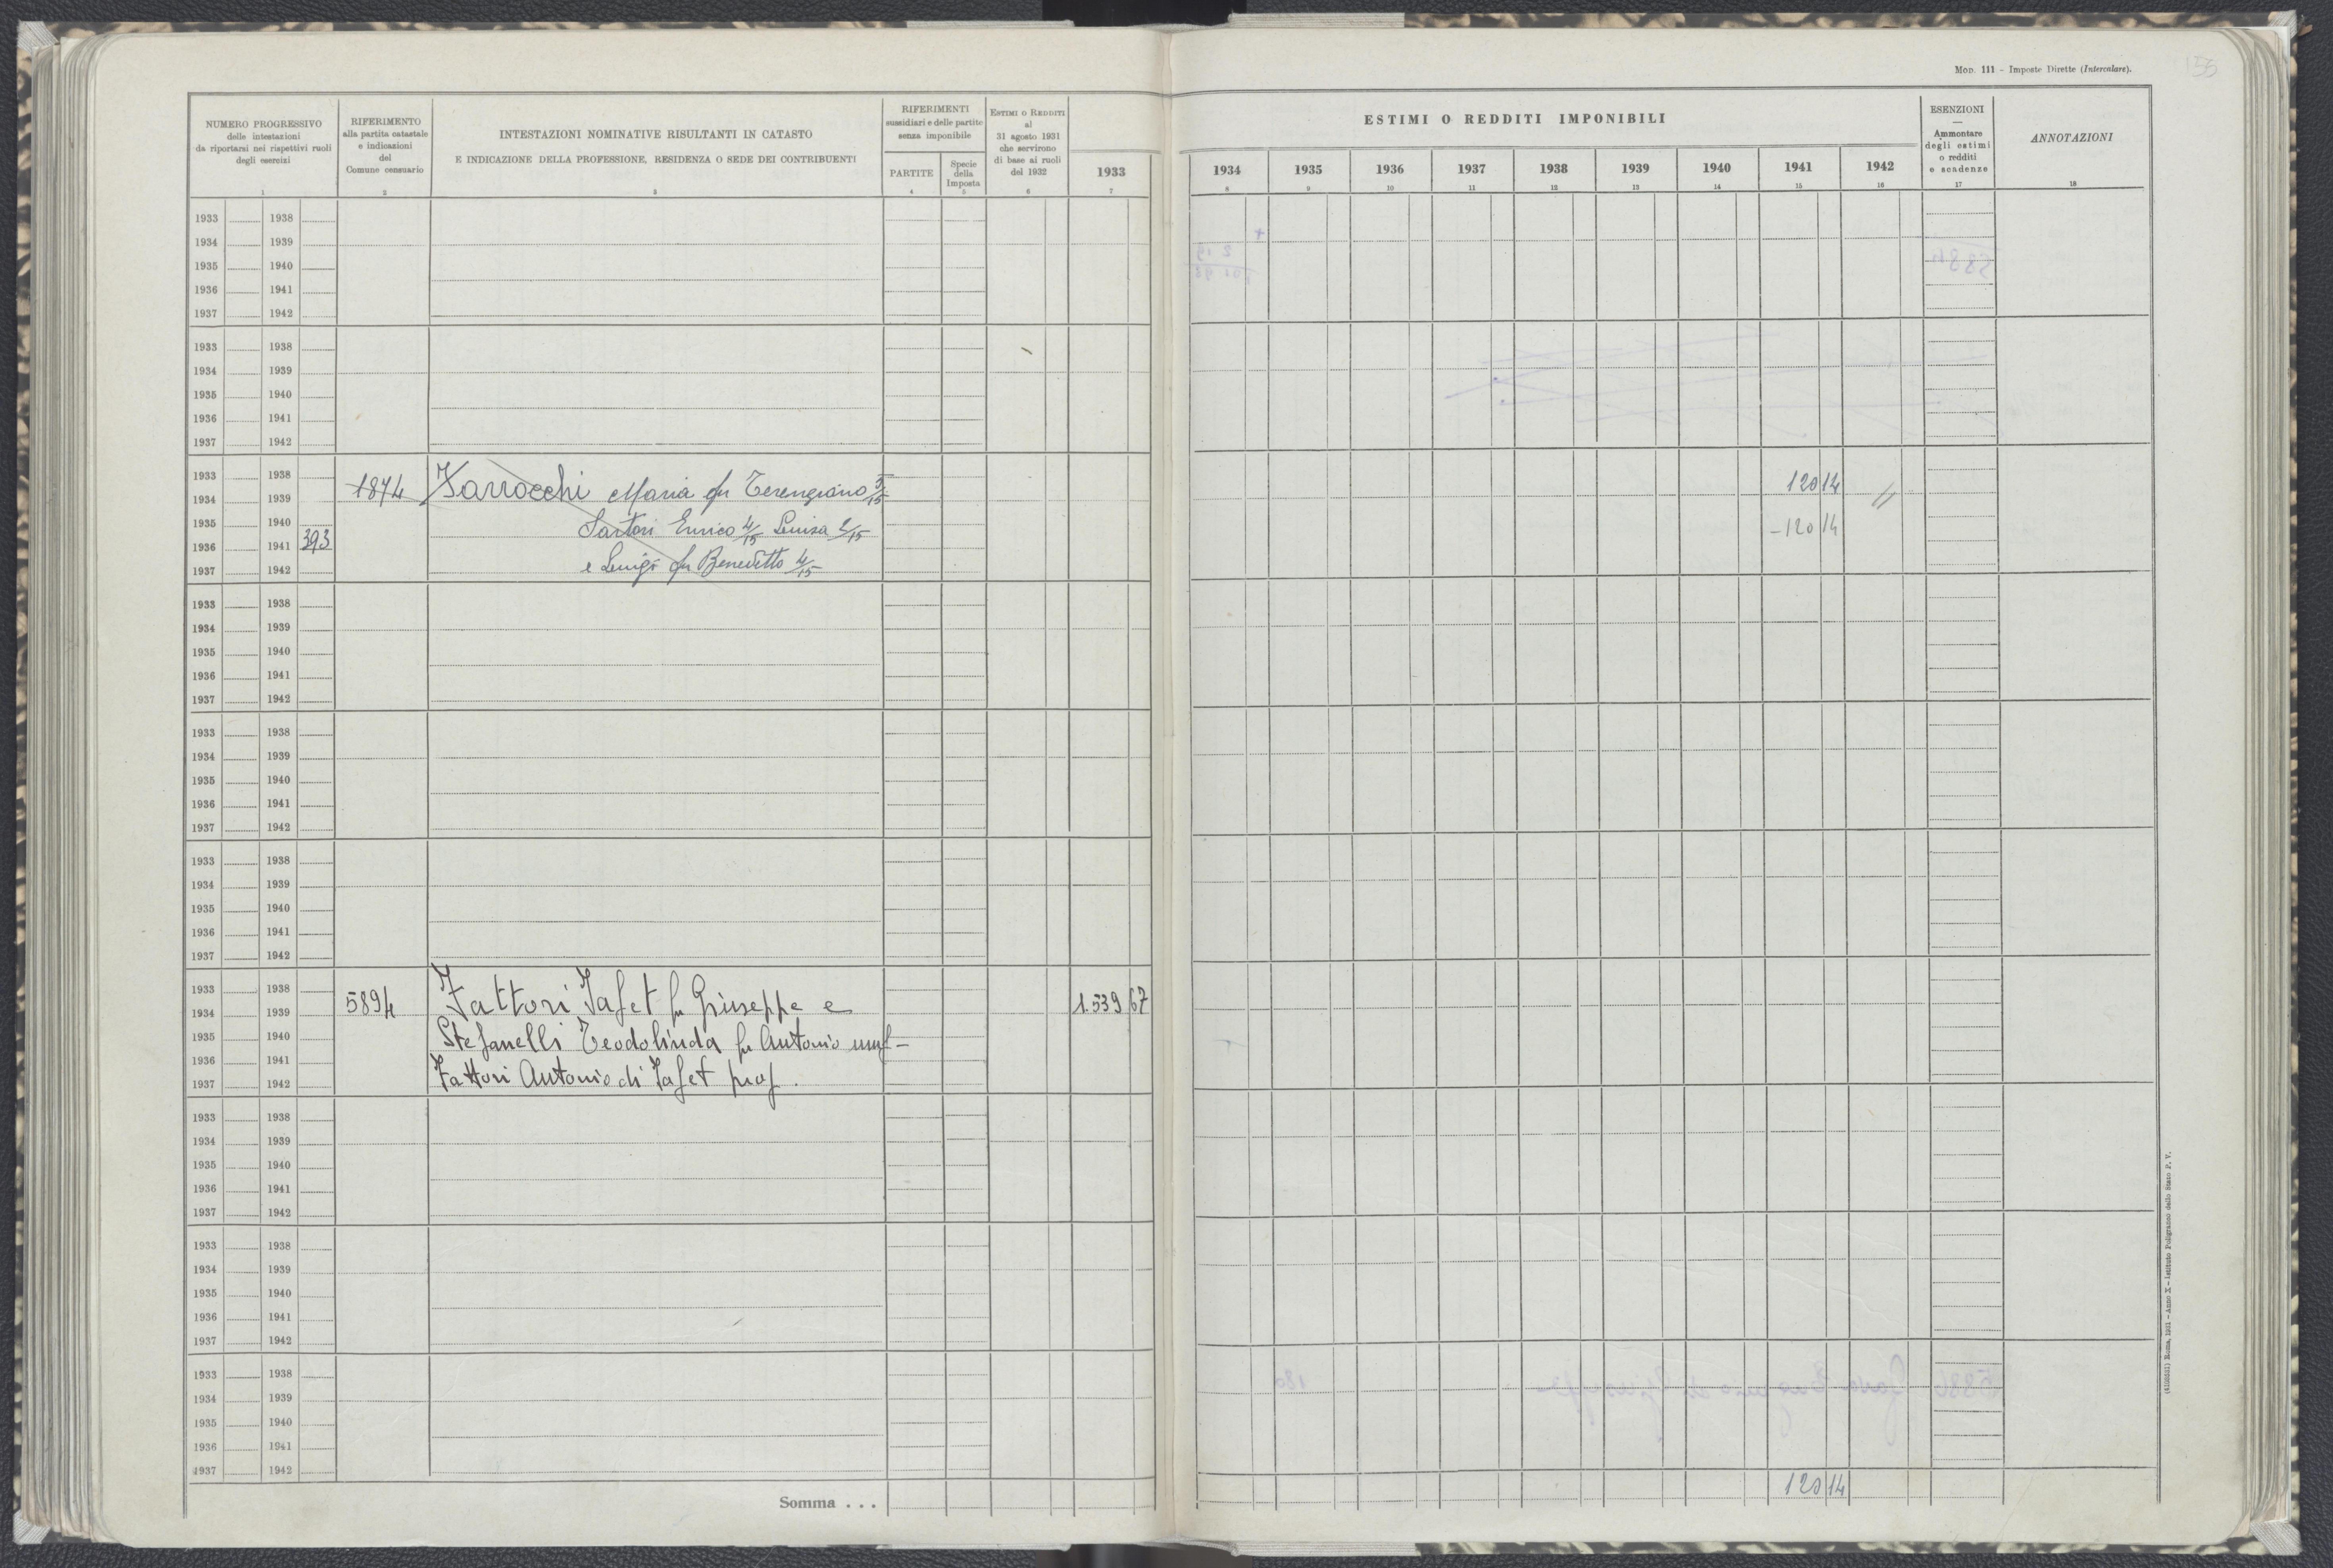 MOD. 111 – Imposte Dirette (Intercalare).
NUMERO PROGRESSIVO
delle intestazioni
da riportarsi nei rispettivi ruoli
degli esercizi
1
RIFERIMENTO
alla partita catastale
e indicazioni
del
Comune censuario
2
INTESTAZIONI NOMINATIVE RISULTANTI IN CATASTO
E INDICAZIONE DELLA PROFESSIONE, RESIDENZA O SEDE DEI CONTRIBUENTI
3
RIFERIMENTI
sussidiari e delle partite
senza imponibile
PARTITE
4
Specie
della
Imposta
5
ESTIMI O REDDITI
al
31 agosto 1931
che servirono
di base ai ruoli
del 1932
6
1933
7
ESTIMI O REDDITI IMPONIBILI
1934 1935 1936 1937 1938 1939 1940 1941 1942
8 9 10 11 12 13 14 15 16
ESENZIONI
—
Ammontare
degli estimi
o redditi
e scadenze
17
ANNOTAZIONI
18
1933 1938
1934 1939
1935 1940
1936 1941
1937 1942
1933 1938
1934 1939
1935 1940
1936 1941
1937 1942
1933 1938
1934 1939 1874 Maria fu Terenziano 5/15 120 14
1935 1940 Sartori Enrico 4/15 Luisa 2/15 -120 14
1936 1941 393
1937 1942 e Luigi fu Benedetto 4/15
1933 1938
1934 1939
1935 1940
1936 1941
1937 1942
1933 1938
1934 1939
1935 1940
1936 1941
1937 1942
1933 1938
1934 1939
1935 1940
1936 1941
1937 1942
1933 1938
1934 1939 5894 Fattori Jafet fu Giuseppe e 1.539 67
1935 1940 Stefanelli Teodolinda fu Antonio usuf-
1936 1941
1937 1942 Fattori Antonio di Jafet prop.
1933 1938
1934 1939
1935 1940
1936 1941
1937 1942
1933 1938
1934 1939
1935 1940
1936 1941
1937 1942
1933 1938
1934 1939
1935 1940
1936 1941
1937 1942
Somma . . . 120 14
(4105531) Roma, 1931 – Anno X – Istituto Poligrafico dello Stato P. V.